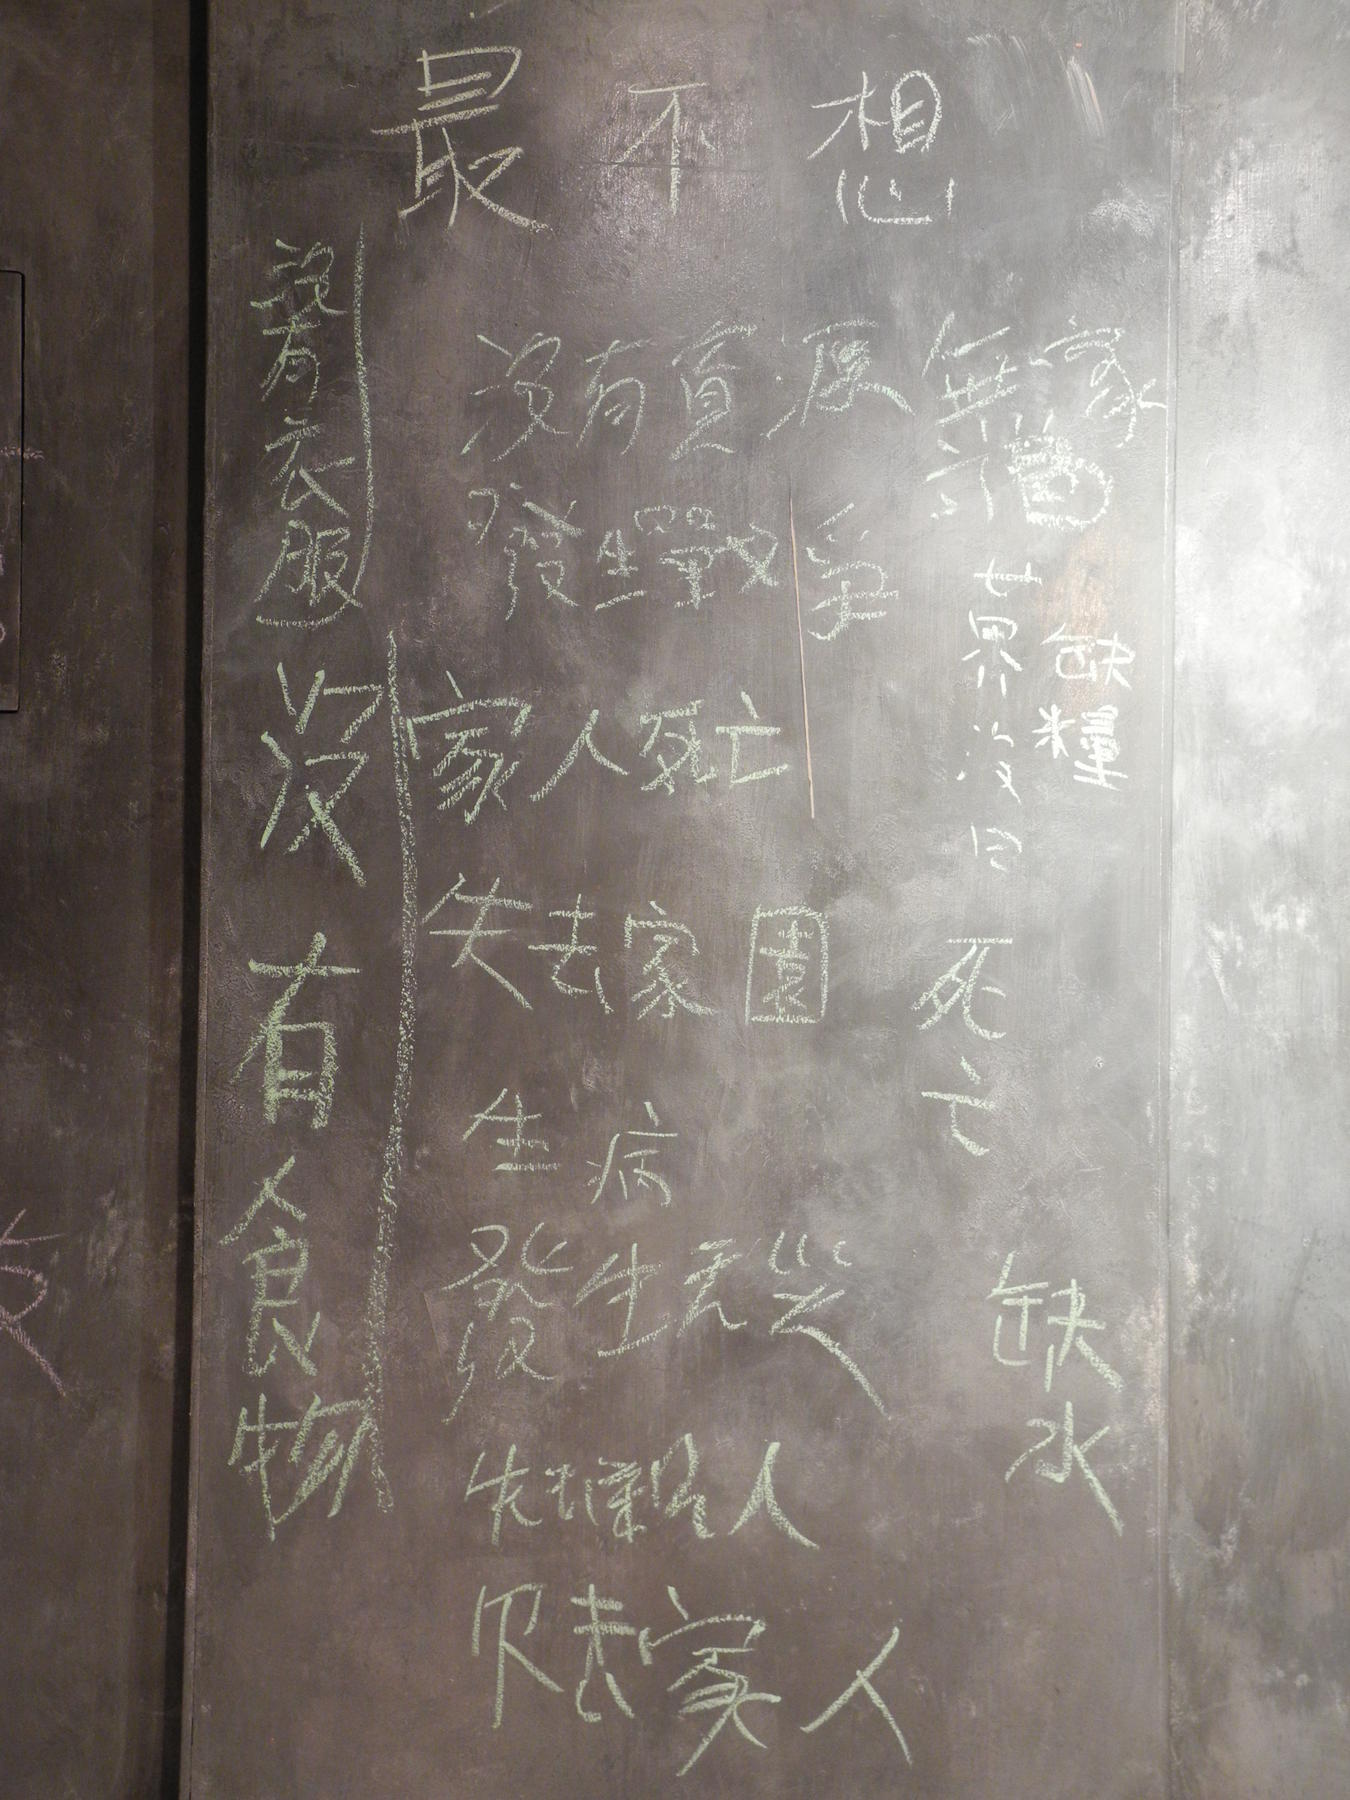 最不想
沒有衣服
沒有食物
沒有
發生戰爭
家人死亡
失去家園
生病
發生天災
失去家人
無家
缺糧
世界沒
死亡
缺水